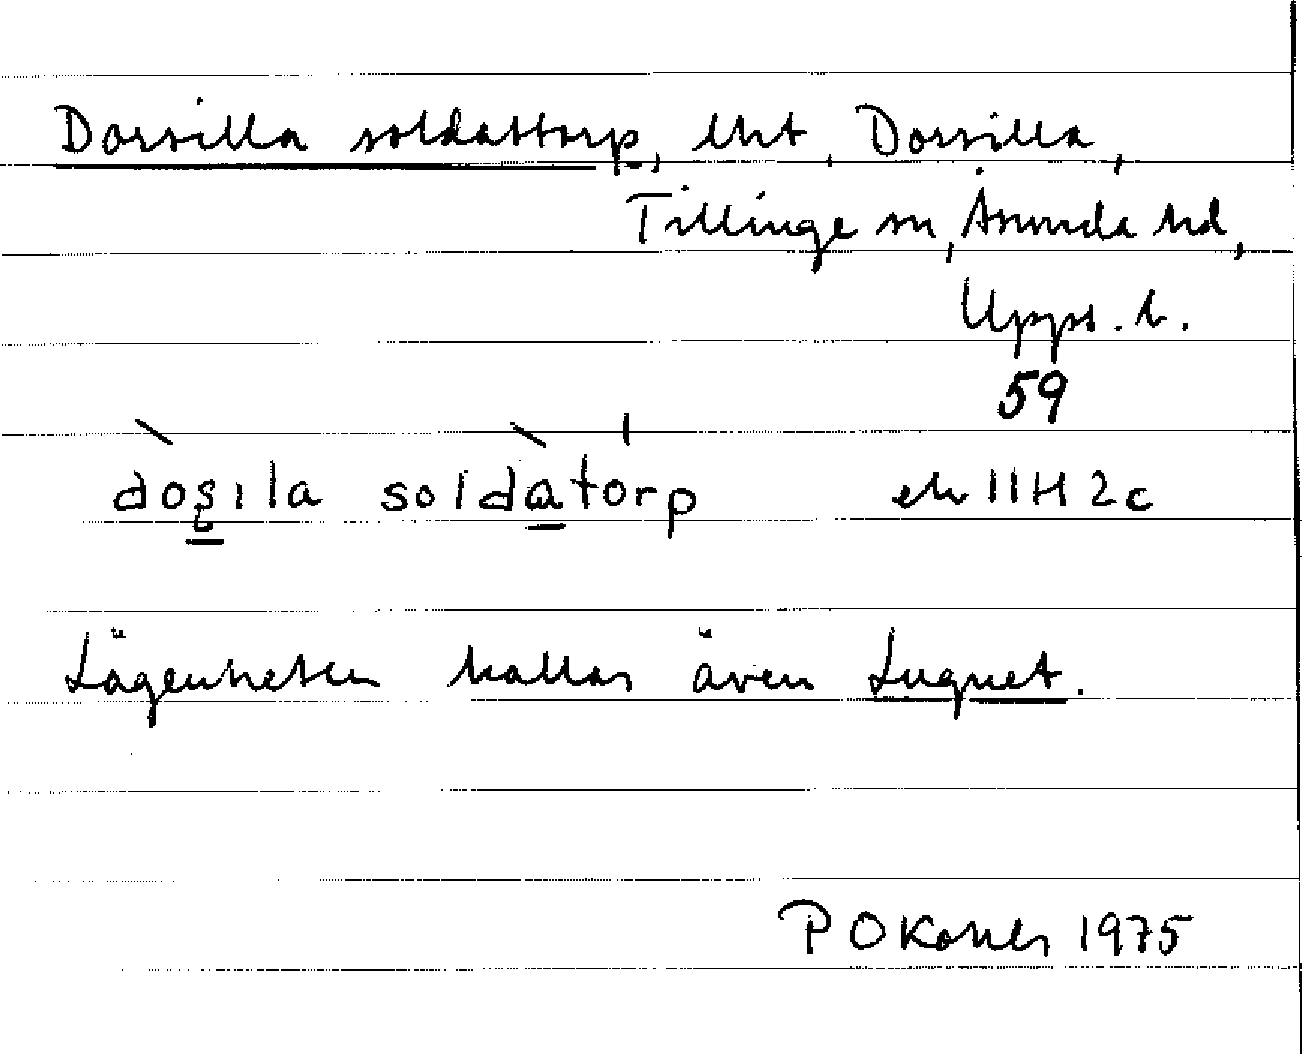 Dorsilla soldattorp, lht, Dorsilla,
Tillinge sn, Åsunda hd,
Upps. l.
59
dosila soldatorp ek 11H 2c
Lägenheten kallas även Lugnet.
P O 1975